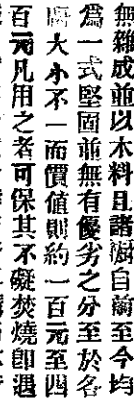 無雜成並以木料且諸漏自前至今均
為一式堅固並無有優劣之分至於名
大小不一而價值則約一百元至四
百元凡用之者可保其不礙焚燒即遇